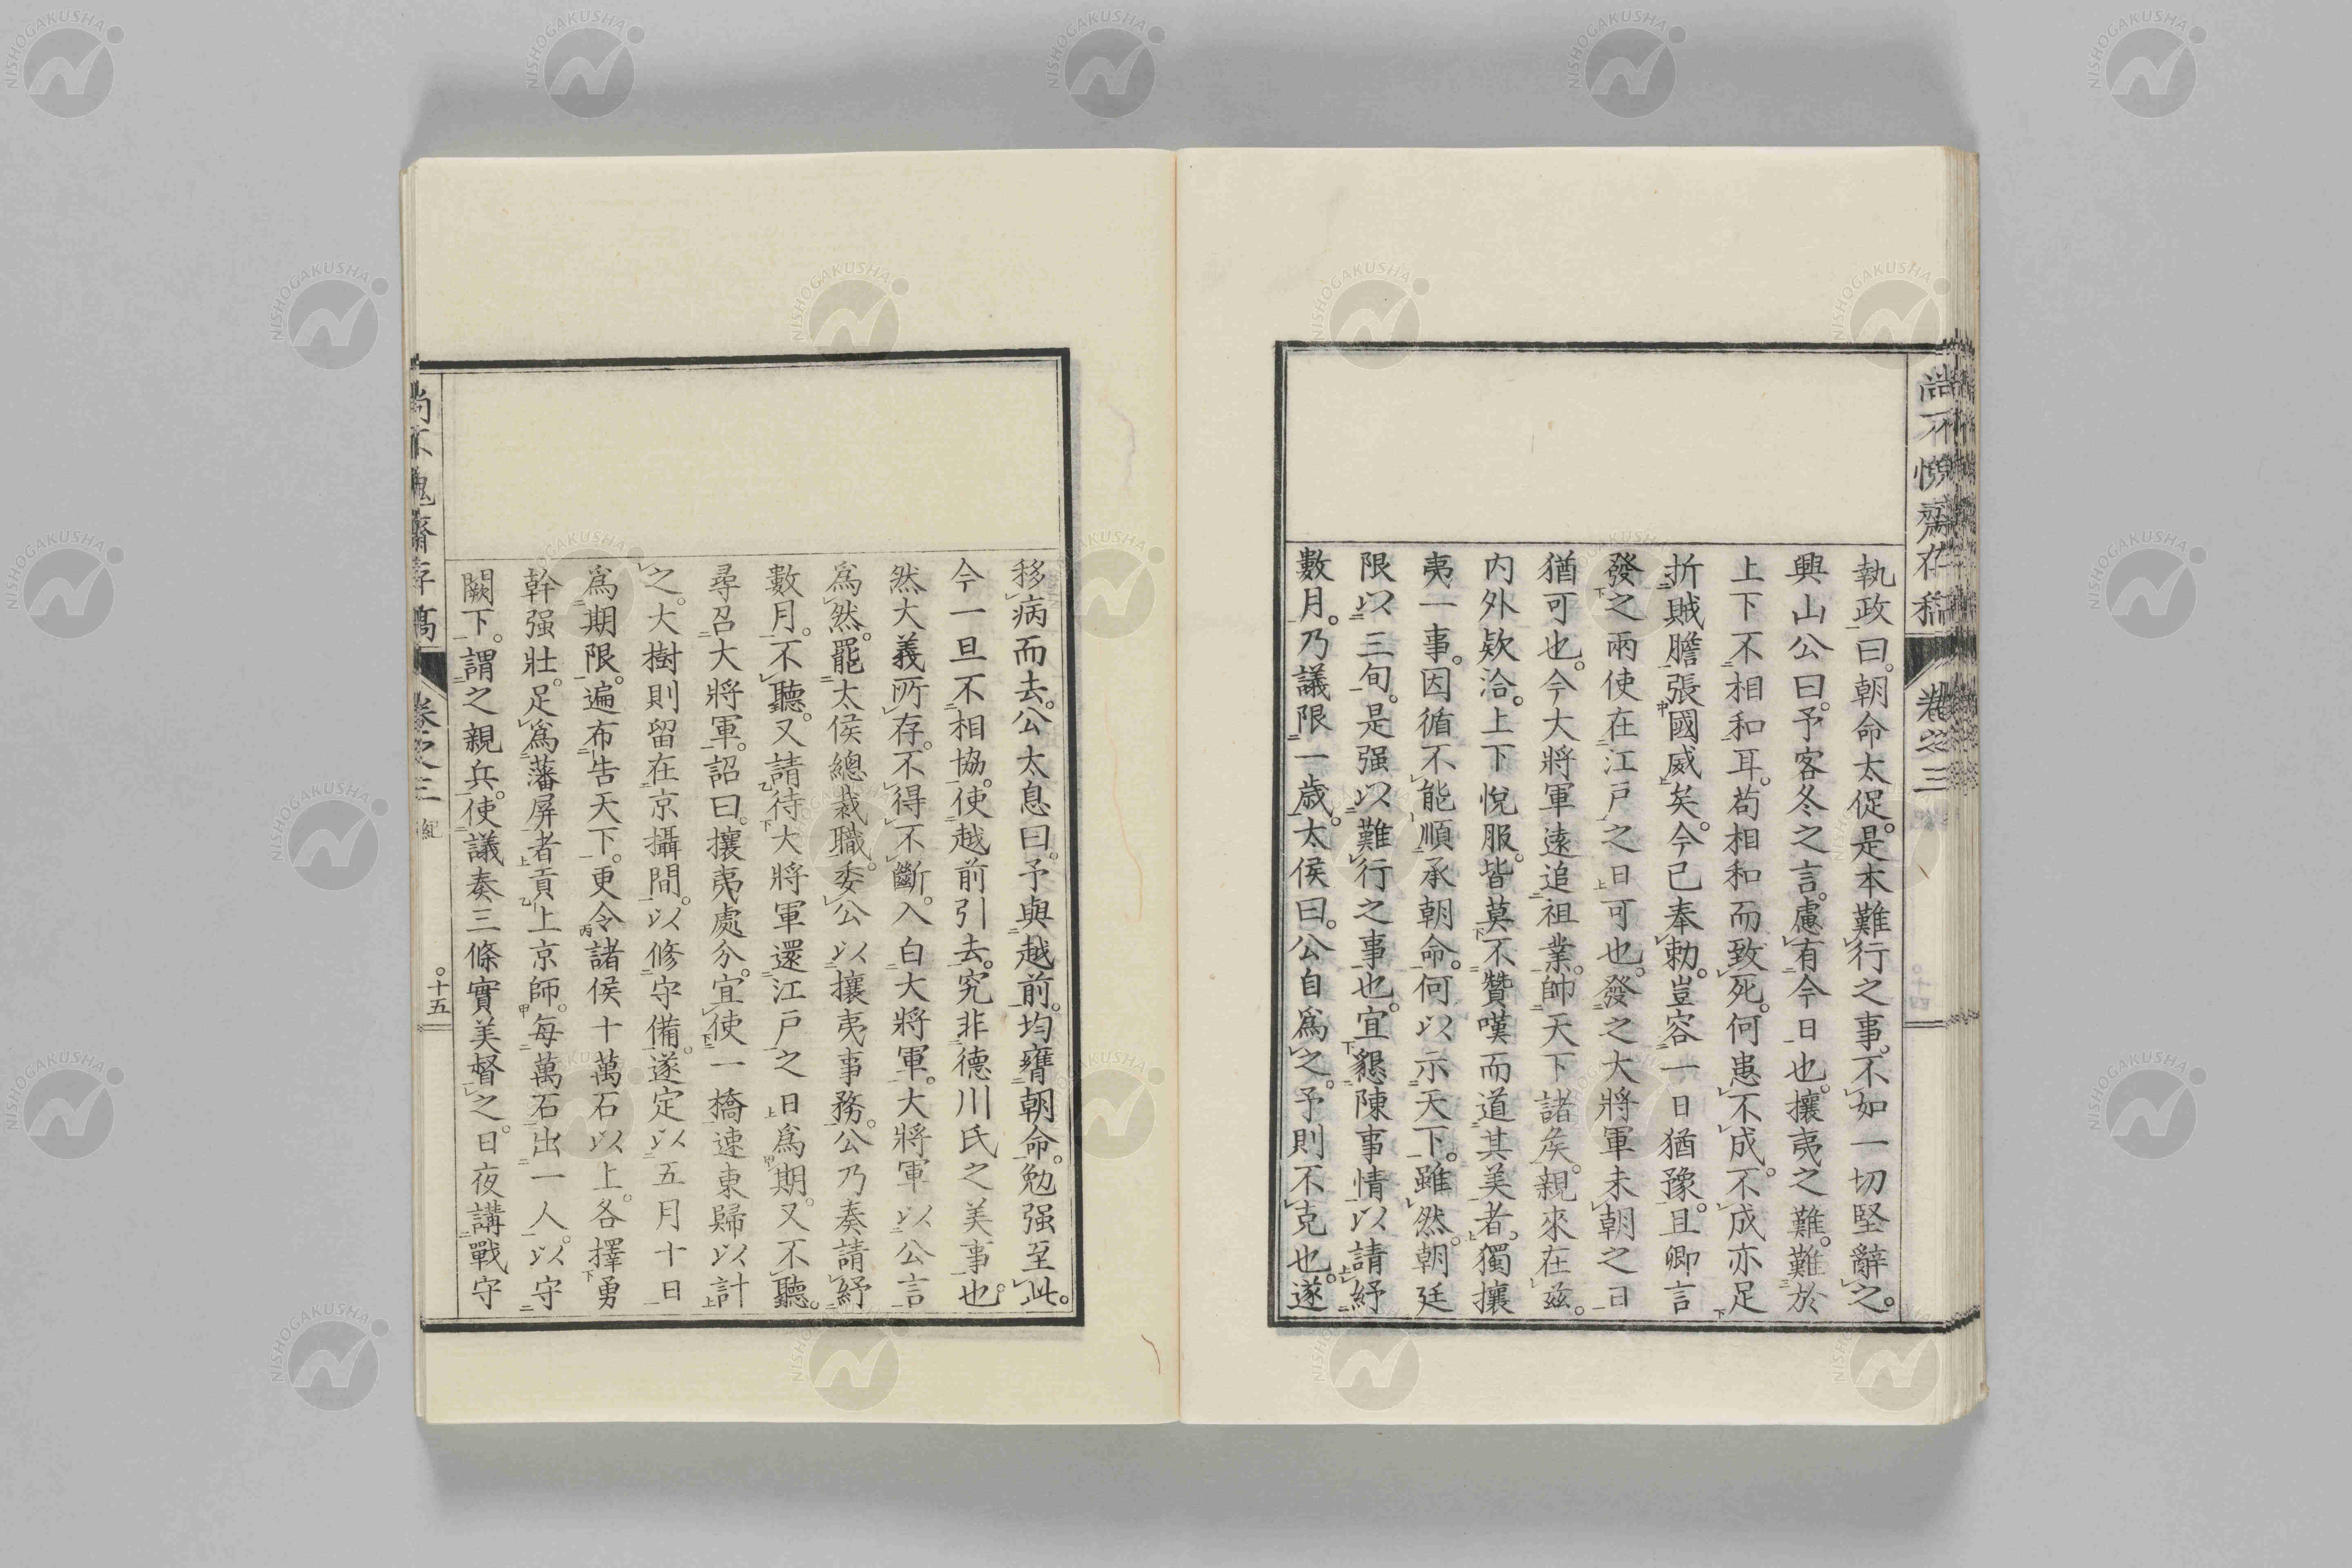 執政曰。朝命太促。是本難行之事。不如一切堅辭之。
興山公曰。予客冬之言。慮有今日也。攘夷之難。難於
上下不相和耳。苟相和而致死。何患不成。不成亦足
折賊膽張國威矣。今已奉勅。豈容一日猶豫。且卿言
發之兩使在江戶之日可也。發之大將軍未朝之日
猶可也。今大將軍遠追祖業。帥天下諸矦。親來在茲。
内外欵洽。上下悅服。皆莫不贊嘆而道其美者。獨攘
夷一事。因循不能順承朝命。何以示天下。雖然。朝廷
限以三旬。是强以難行之事也。宜懇陳事情以請紓
數月。乃議限一歲。太侯曰。公自爲之。予則不克也。遂
移病而去。公太息曰。予與越前。均膺朝命。勉强至此。
今一旦不相協。使越前引去。究非德川氏之美事也。
然大義所存。不得不斷。入白大將軍。大將軍以公言
爲然。罷太侯總裁職。委公以攘夷事務。公乃奏請紓
數月。不聽。又請待大將軍還江戶之日爲期。又不聽。
尋召大將軍。詔曰。攘夷處分。宜使一橋速東歸以計
之。大樹則留在京攝間。以修守備。遂定以五月十日
爲期限。遍布告天下。更令諸侯十萬石以上。各擇勇
幹强壯。足爲藩屏者貢上京師。每萬石出一人。以守
闕下。謂之親兵。使議奏三條實美督之。日夜講戰守
卷之三
十五
NISHOGAKUSHA